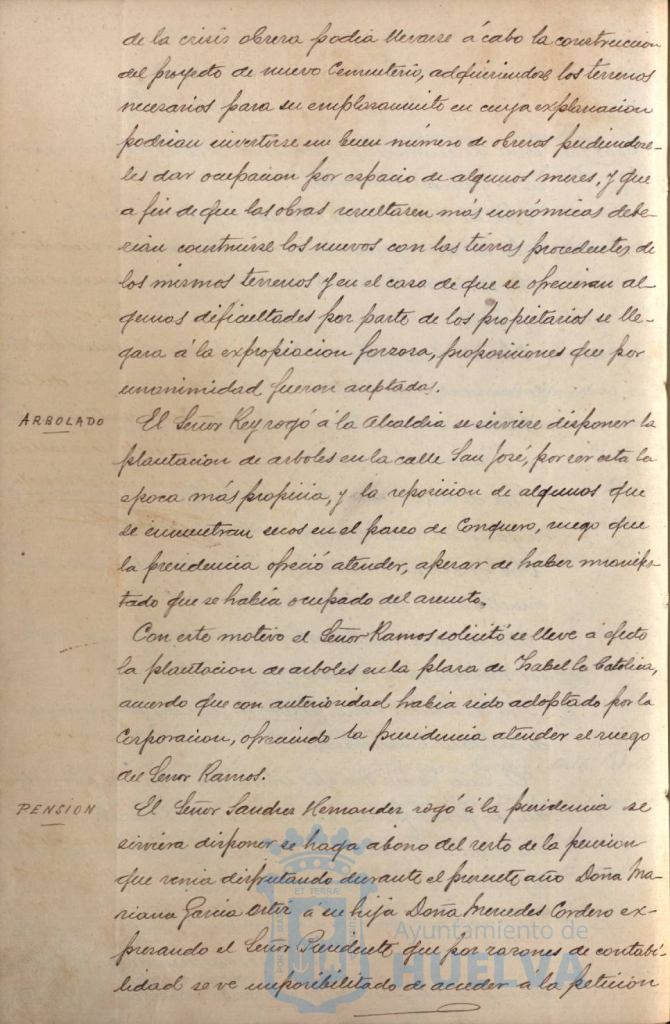 de la crisis obrera podia llevarse á cabo la construccion
del proyecto de nuevo Cementerio, adquiriendose los terrenos
necesarios para su emplazamiento en cuya explanacion
podrian invertirse un buen número de obreros pudiendose-
les dar ocupacion por espacio de algunos meses, y que
a fin de que las obras resultasen más económicas debe-
rian construirse los muros con las tierras procedentes de
los mismos terrenos y en el caso de que se ofrecieran al-
gunas dificultades por parte de los propietarios se lle-
gara á la expropiacion forzosa, proposiciones que por
unanimidad fueron aceptadas.
ARBOLADO
El Señor Rey rogó á la Alcaldia se sirviese disponer la
plantacion de arboles en la calle San José, por ser esta la
epoca más propicia, y la reposicion de algunos que
se encuentran secos en el paseo de Conquero, ruego que
la presidencia ofreció atender, apesar de haber manifes-
tado que se habia ocupado del asunto.
Con este motivo el Señor Ramos solicitó se lleve á efecto
la plantacion de arboles en la plaza de Isabel la Católica,
acuerdo que con anterioridad habia sido adoptado por la
Corporacion, ofreciendo la presidencia atender el ruego
del Señor Ramos.
PENSION
El Señor Sanchez Hernandez rogó á la presidencia se
sirviera disponer se haga abono del resto de la pension
que venia disfrutando durante el presente año Doña Ma-
riana Garcia Ortiz á su hija Doña Mercedes Cordero ex-
presando el Señor Presidente que por razones de contabi-
lidad se ve imposibilitado de acceder á la peticion
Ayuntamiento de
HUELVA